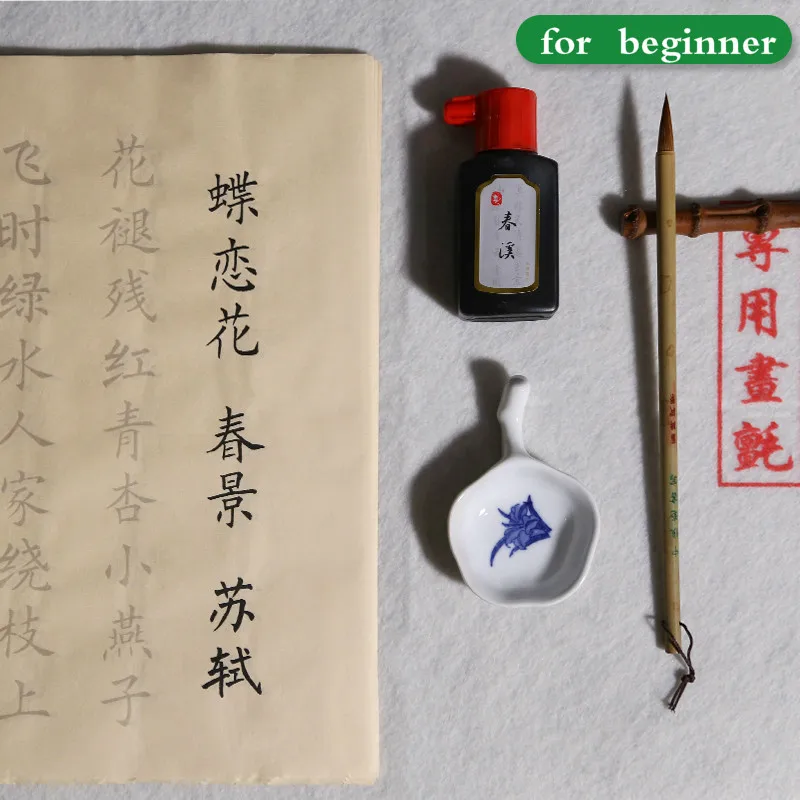 for beginner
蝶恋花 春景 苏轼
花褪残红青杏小燕子
飞时绿水人家绕枝上
春溪
專用畫氈